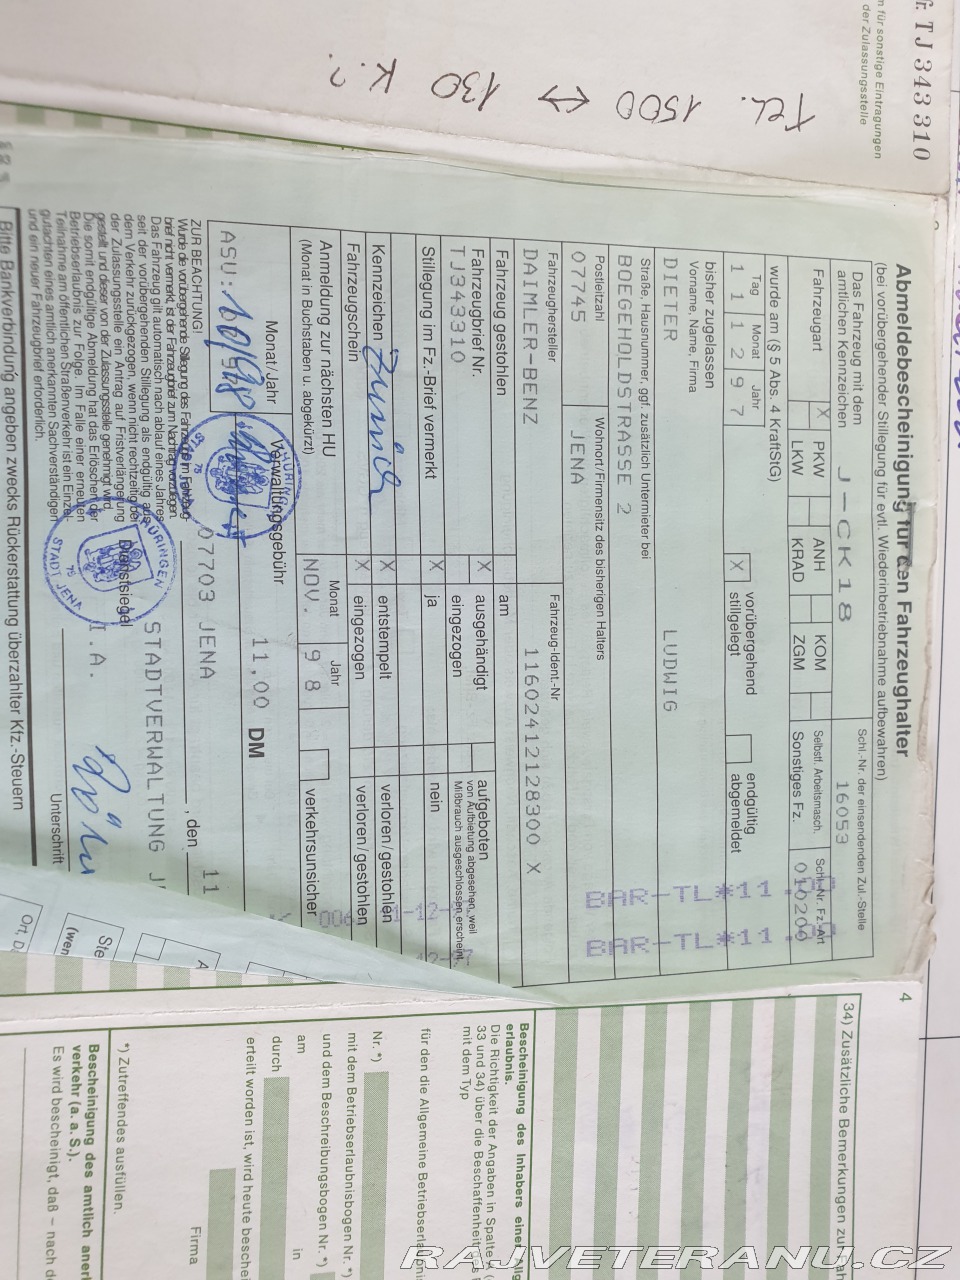 Fr. TJ343310
n für sonstige Eintragungen
der Zulassungsstelle
Tech. 1500 ↔ 130 K.?
Abmeldebescheinigung für den Fahrzeughalter
(bei vorübergehender Stillegung für evtl. Wiederinbetriebnahme aufbewahren)
Das Fahrzeug mit dem
amtlichen Kennzeichen
J-CK18
Schl.-Nr. der einsendenden Zul.-Stelle
16053
Fahrzeugart
X PKW ANH KOM Selbstf. Arbeitsmasch.
LKW KRAD ZGM Sonstiges Fz.
Schl.-Nr. Fz.-Art
010200
wurde am (§ 5 Abs. 4 KraftStG)
Tag Monat Jahr
1 1 1 2 9 7
X vorübergehend
stillgelegt
endgültig
abgemeldet
BAR-TL*11
BAR-TL*11
bisher zugelassen
Vorname, Name, Firma
DIETER LUDWIG
Straße, Hausnummer, ggf. zusätzlich Untermieter bei
BOEGEHOLDSTRASSE 2
Postleitzahl Wohnort/Firmensitz des bisherigen Halters
07745 JENA
Fahrzeughersteller Fahrzeug-Ident.-Nr
DAIMLER-BENZ 11602412128300 X
Fahrzeug gestohlen am
Fahrzeugbrief Nr.
TJ343310
X ausgehändigt
eingezogen
aufgeboten
von Aufbietung abgesehen, weil
Mißbrauch ausgeschlossen erscheint
Stillegung im Fz.-Brief vermerkt X ja nein
Kennzeichen X entstempelt verloren/gestohlen
Fahrzeugschein X eingezogen verloren/gestohlen
Anmeldung zur nächsten HU
(Monat in Buchstaben u. abgekürzt)
Monat Jahr
NOV. 9 8
verkehrsunsicher
Monat/Jahr
ASU:
Verwaltungsgebühr
11,00 DM
ZUR BEACHTUNG!
Wurde die vorübergehende Stillegung des Fahrzeugs im Fahrzeug-
brief nicht vermerkt, ist der Fahrzeugbrief zum Nachtrag vorzulegen.
Das Fahrzeug gilt automatisch nach ablauf eines Jahres
seit der vorübergehenden Stillegung als endgültig aus
dem Verkehr zurückgezogen, wenn nicht rechtzeitig bei
der Zulassungsstelle ein Antrag auf Fristverlängerung
gestellt und dieser von der Zulassungsstelle genehmigt wird.
Die somit endgültige Abmeldung hat das Erlöschen der
Betriebserlaubnis zur Folge. Im Falle einer erneuten
Teilnahme am öffentlichen Straßenverkehr ist ein Einzel-
gutachten eines amtlich anerkannten Sachverständigen
und ein neuer Fahrzeugbrief erforderlich.
07703 JENA , den 11
STADTVERWALTUNG
THÜRINGEN
STADT JENA
75
Dienstsiegel
I.A.
Unterschrift
Bitte Bankverbindung angeben zwecks Rückerstattung überzahlter Kfz.-Steuern
Ste
(wen
Ort, D
4
34) Zusätzliche Bemerkungen zu
Bescheinigung des Inhabers einer
erlaubnis.
Die Richtigkeit der Angaben in Spalte
33 und 34) über die Beschaffenheit des
mit dem Typ
für den die Allgemeine Betriebserla
Nr. *)
mit dem Betriebserlaubnisbogen Nr. *)
und dem Beschreibungsbogen Nr. *)
am in
durch
erteilt worden ist, wird heute beschei
Firma
*) Zutreffendes ausfüllen.
Bescheinigung des amtlich aner
verkehr (a. a. S.).
Es wird bescheinigt, daß – nach d
RAJVETERANU.CZ